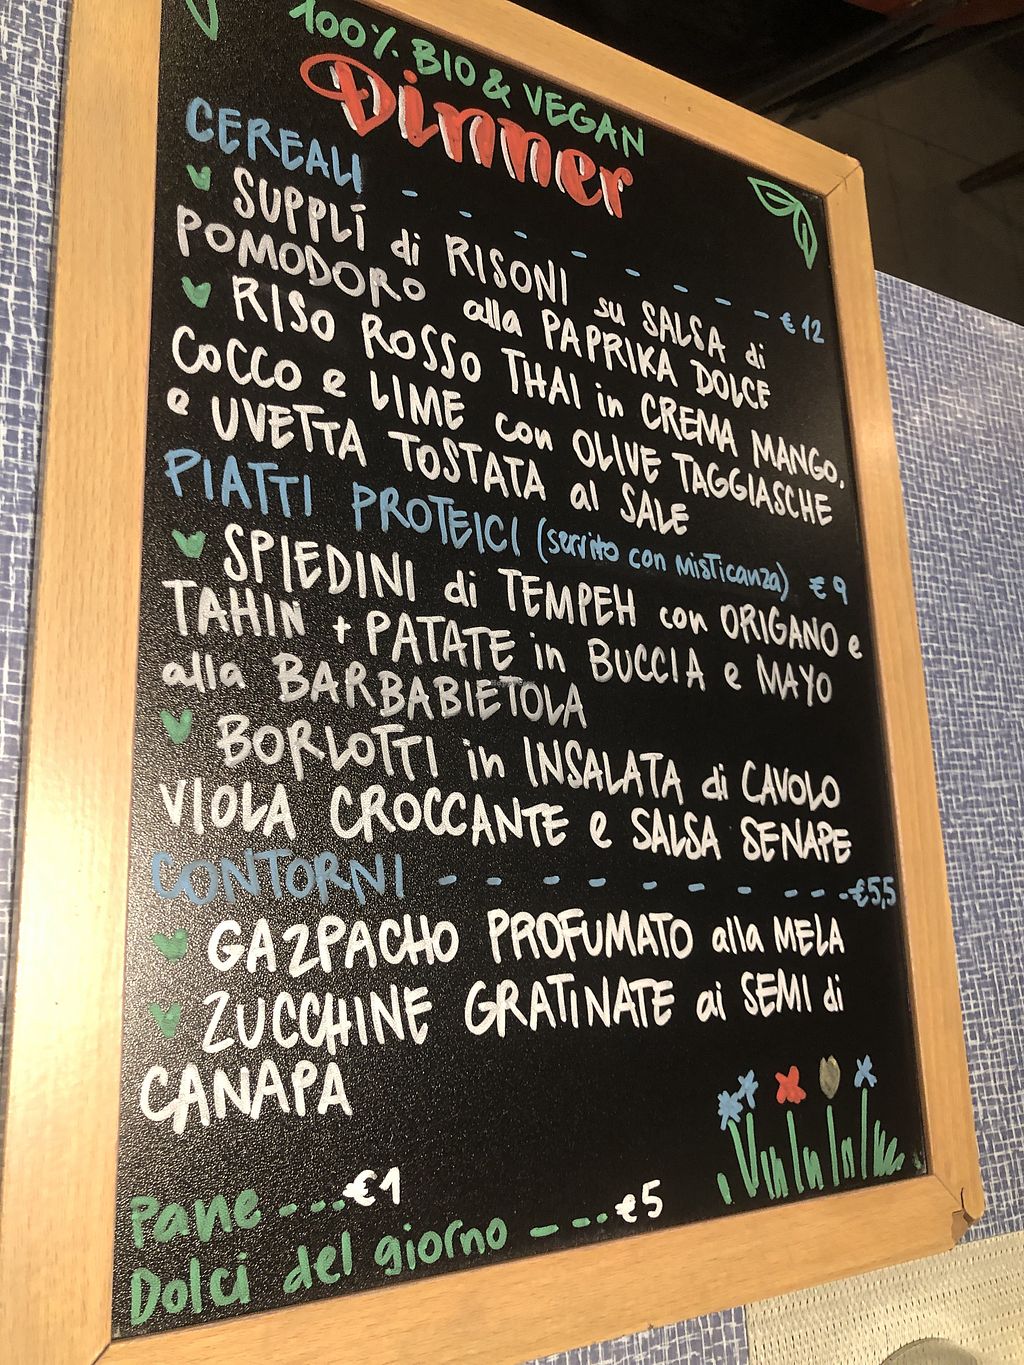 100% BIO & VEGAN
Dinner
CEREALI - - - - - - - - - € 12
SUPPLÌ di RISONI su SALSA di
POMODORO alla PAPRIKA DOLCE
RISO ROSSO THAI in CREMA MANGO,
COCCO e LIME con OLIVE TAGGIASCHE
e UVETTA TOSTATA al SALE
PIATTI PROTEICI (servito con misticanza) € 9
SPIEDINI di TEMPEH con ORIGANO e
TAHIN + PATATE in BUCCIA e MAYO
alla BARBABIETOLA
BORLOTTI in INSALATA di CAVOLO
VIOLA CROCCANTE e SALSA SENAPE
CONTORNI - - - - - - - - - - - €5,5
GAZPACHO PROFUMATO alla MELA
ZUCCHINE GRATINATE ai SEMI di
CANAPA
Pane - - - . €1
Dolci del giorno - - - . €5